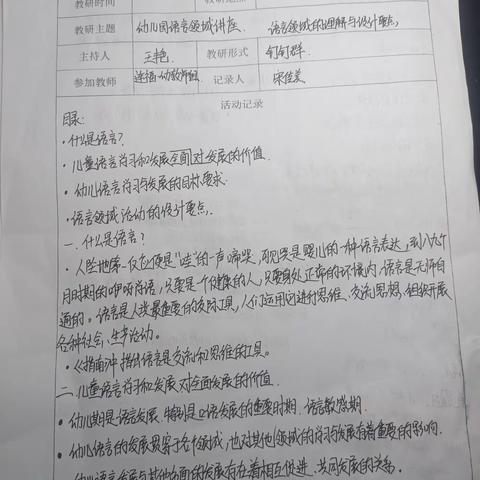 教研时间
教研主题 幼儿园语言领域讲座. 语言领域的理解与设计要点,
主持人 王艳. 教研形式 钉钉群.
参加教师 记录人 宋佳美
活动记录
目录:
·什么是语言?
·儿童语言学习和发展全面对发展的价值.
·幼儿语言学习与发展的目标要求.
·语言领域活动的设计要点.
一.什么是语言?
·人坠地第一反应便是"哇"的一声啼哭,可见哭是婴儿的一种语言表达,到八九个
月时期的咿呀学语,只要是个健康的人,只要身处正常的环境内,语言是无师自
通的。语言是人类最重要的交际工具,人们运用它进行思维、交流思想、组织开展
各种社会、生产活动。
·《指南》中指出语言是交流和思维的工具。
二.儿童语言学习和发展对全面发展的价值.
·幼儿期是语言发展,特别是口语发展的重要时期.语言敏感期.
·幼儿语言的发展贯穿于各个领域,也对其他领域的学习与发展有着重要的影响.
·幼儿语言发展与其他方面的发展存在着相互促进、共同发展的关系.